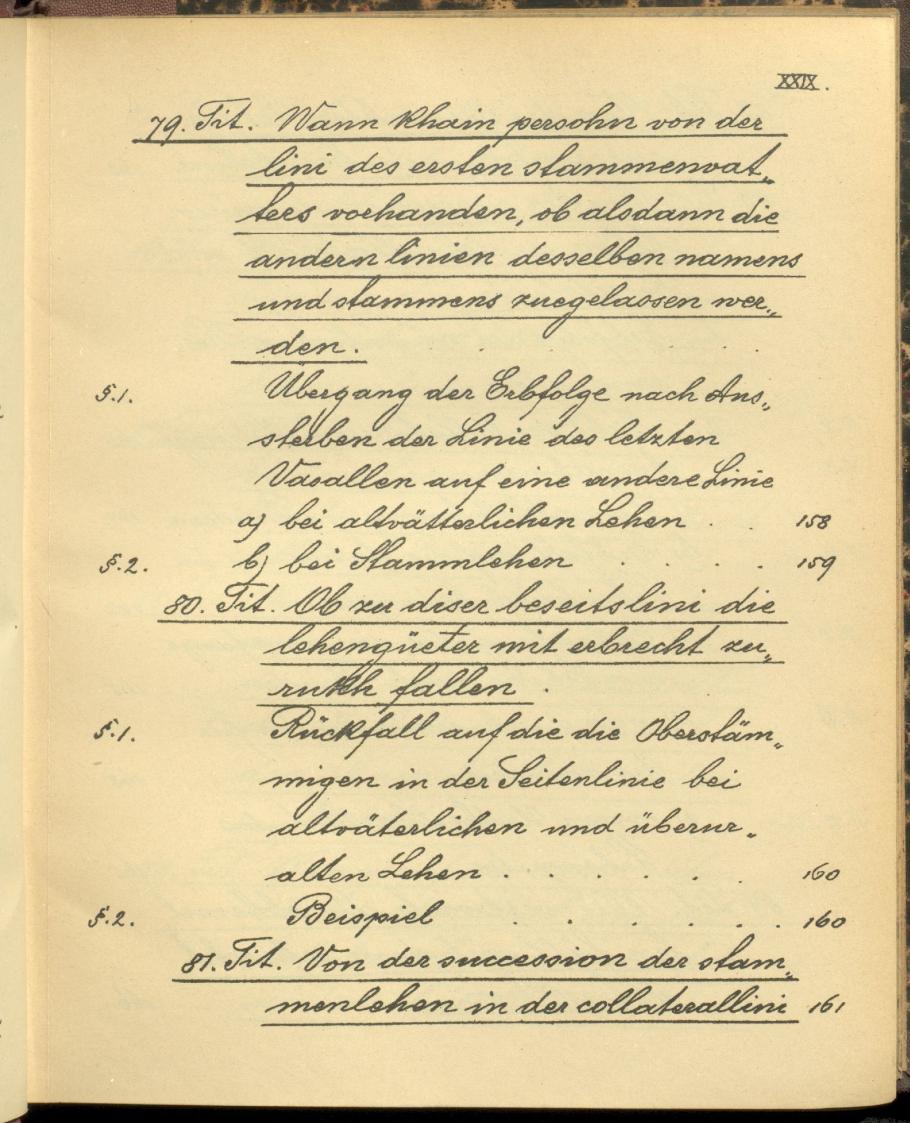 XXIX.
79. Tit. Wann khain persohn von der
lini des ersten stammenvat„
ters vorhanden, ob alsdann die
andern linien desselben namens
und stammens zuegelassen wer„
den.
§.1. Übergang der Erbfolge nach Aus„
sterben der Linie des letzten
Vasallen auf eine andere Linie
a) bei altvätterlichen Lehen . . 158
§.2. b) bei Stammlehen . . . . 159
80. Tit. Ob zu diser beseitslini die
lehengüeter mit erbrecht zu„
rukh fallen .
§.1. Rückfall auf die die Oberstäm„
migen in der Seitenlinie bei
altväterlichen und überur„
alten Lehen . . . . . . 160
§.2. Beispiel . . . . . . 160
81. Tit. Von der succession der stam„
menlehen in der collaterallini 161